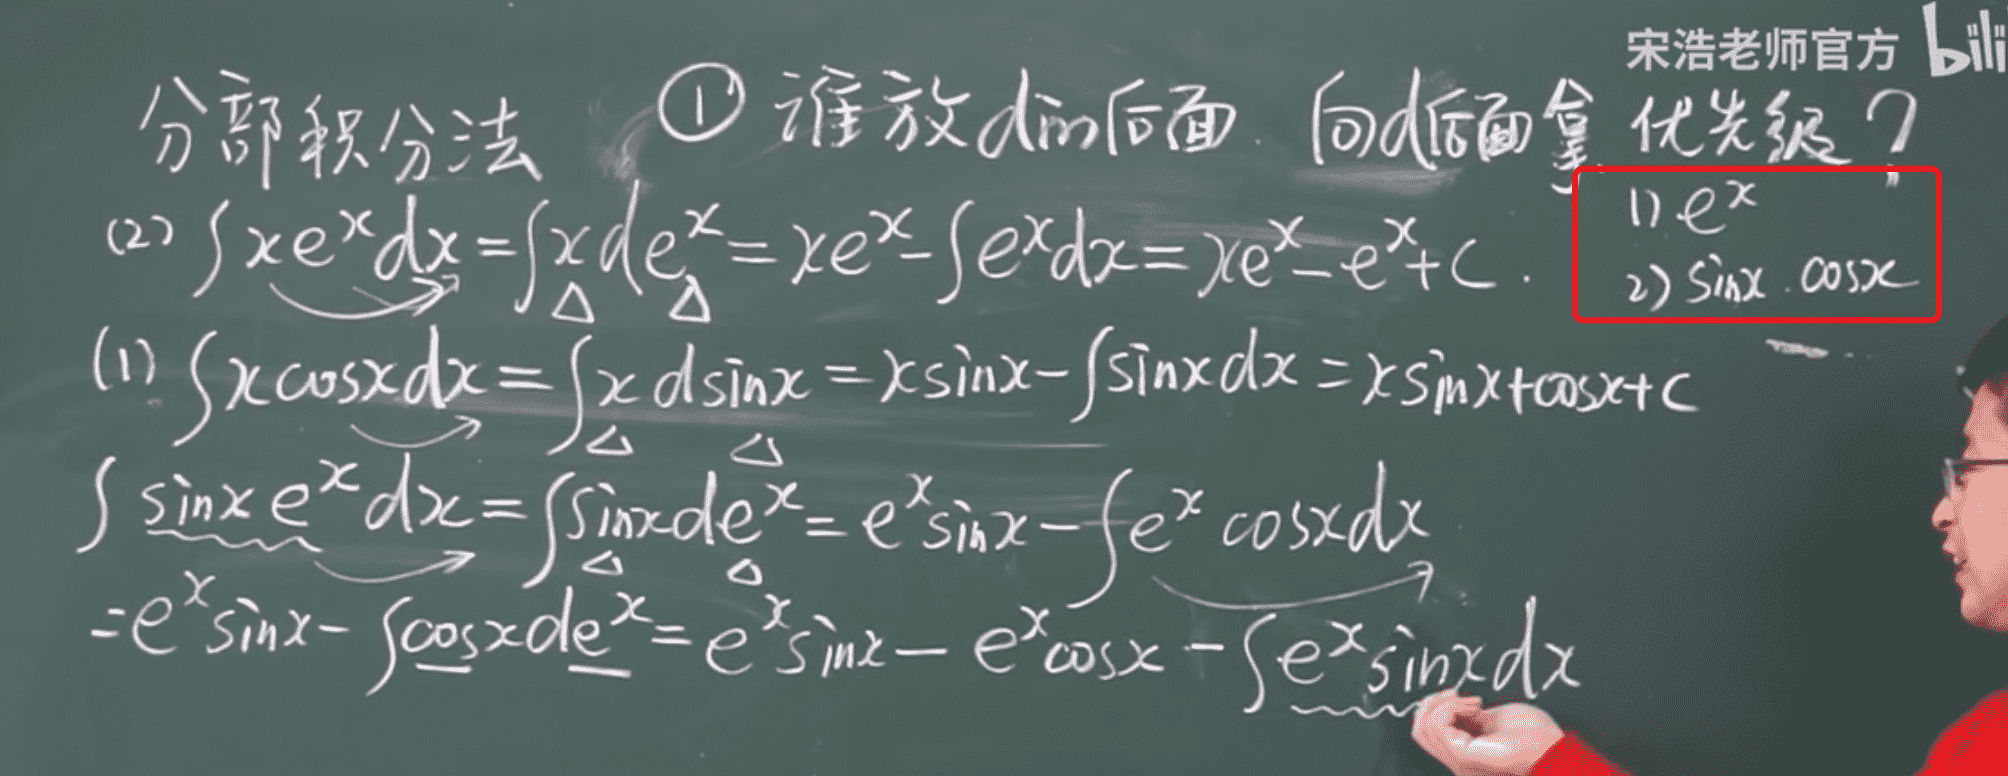 宋浩老师官方 bili
分部积分法 ① 谁放d的后面. 向d后面拿 优先级?
1) eˣ
2) sinx . cosx
(2) ∫xeˣdx=∫xdeˣ=xeˣ-∫eˣdx=xeˣ-eˣ+C.
(1) ∫xcosxdx=∫xdsinx=xsinx-∫sinxdx=xsinx+cosx+C
∫sinxeˣdx=∫sinxdeˣ=eˣsinx-∫eˣcosxdx
=eˣsinx-∫cosxdeˣ=eˣsinx-eˣcosx-∫eˣsinxdx